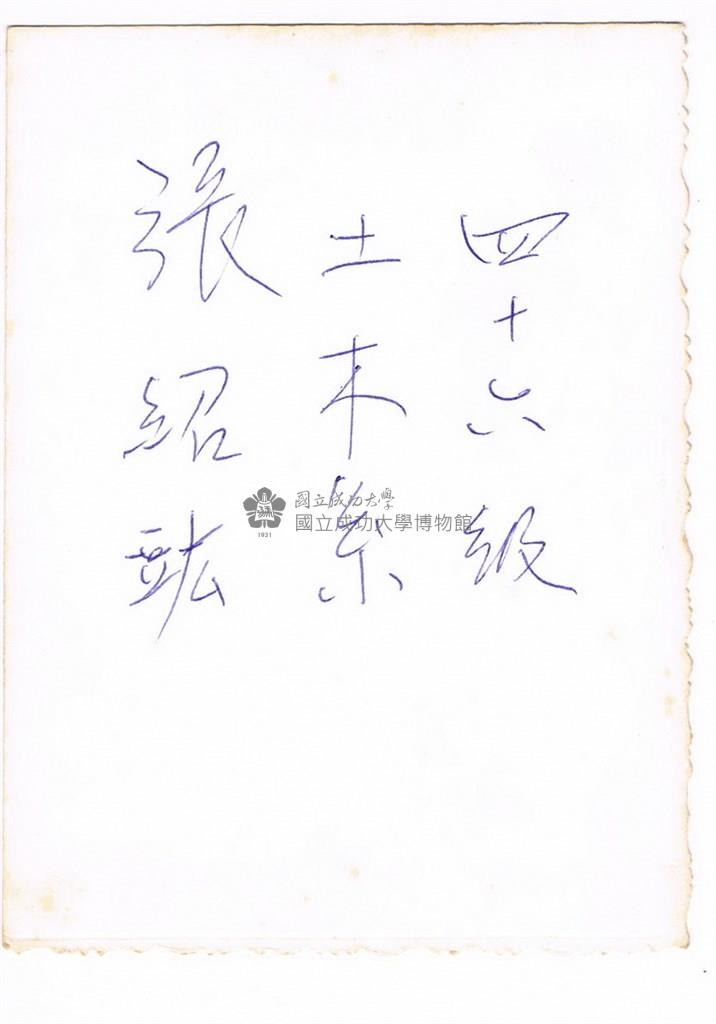 四十六級
土木系
張紹
國立成功大學
國立成功大學博物館
1931